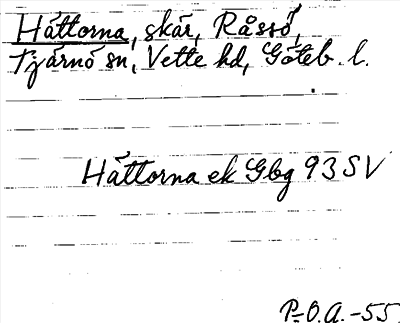 Hättorna, skär, Råssö,
Tjärnö sn, Vette hd, Göteb. l.
Hättorna ek Gbg 93 SV
P-O.A. -55.